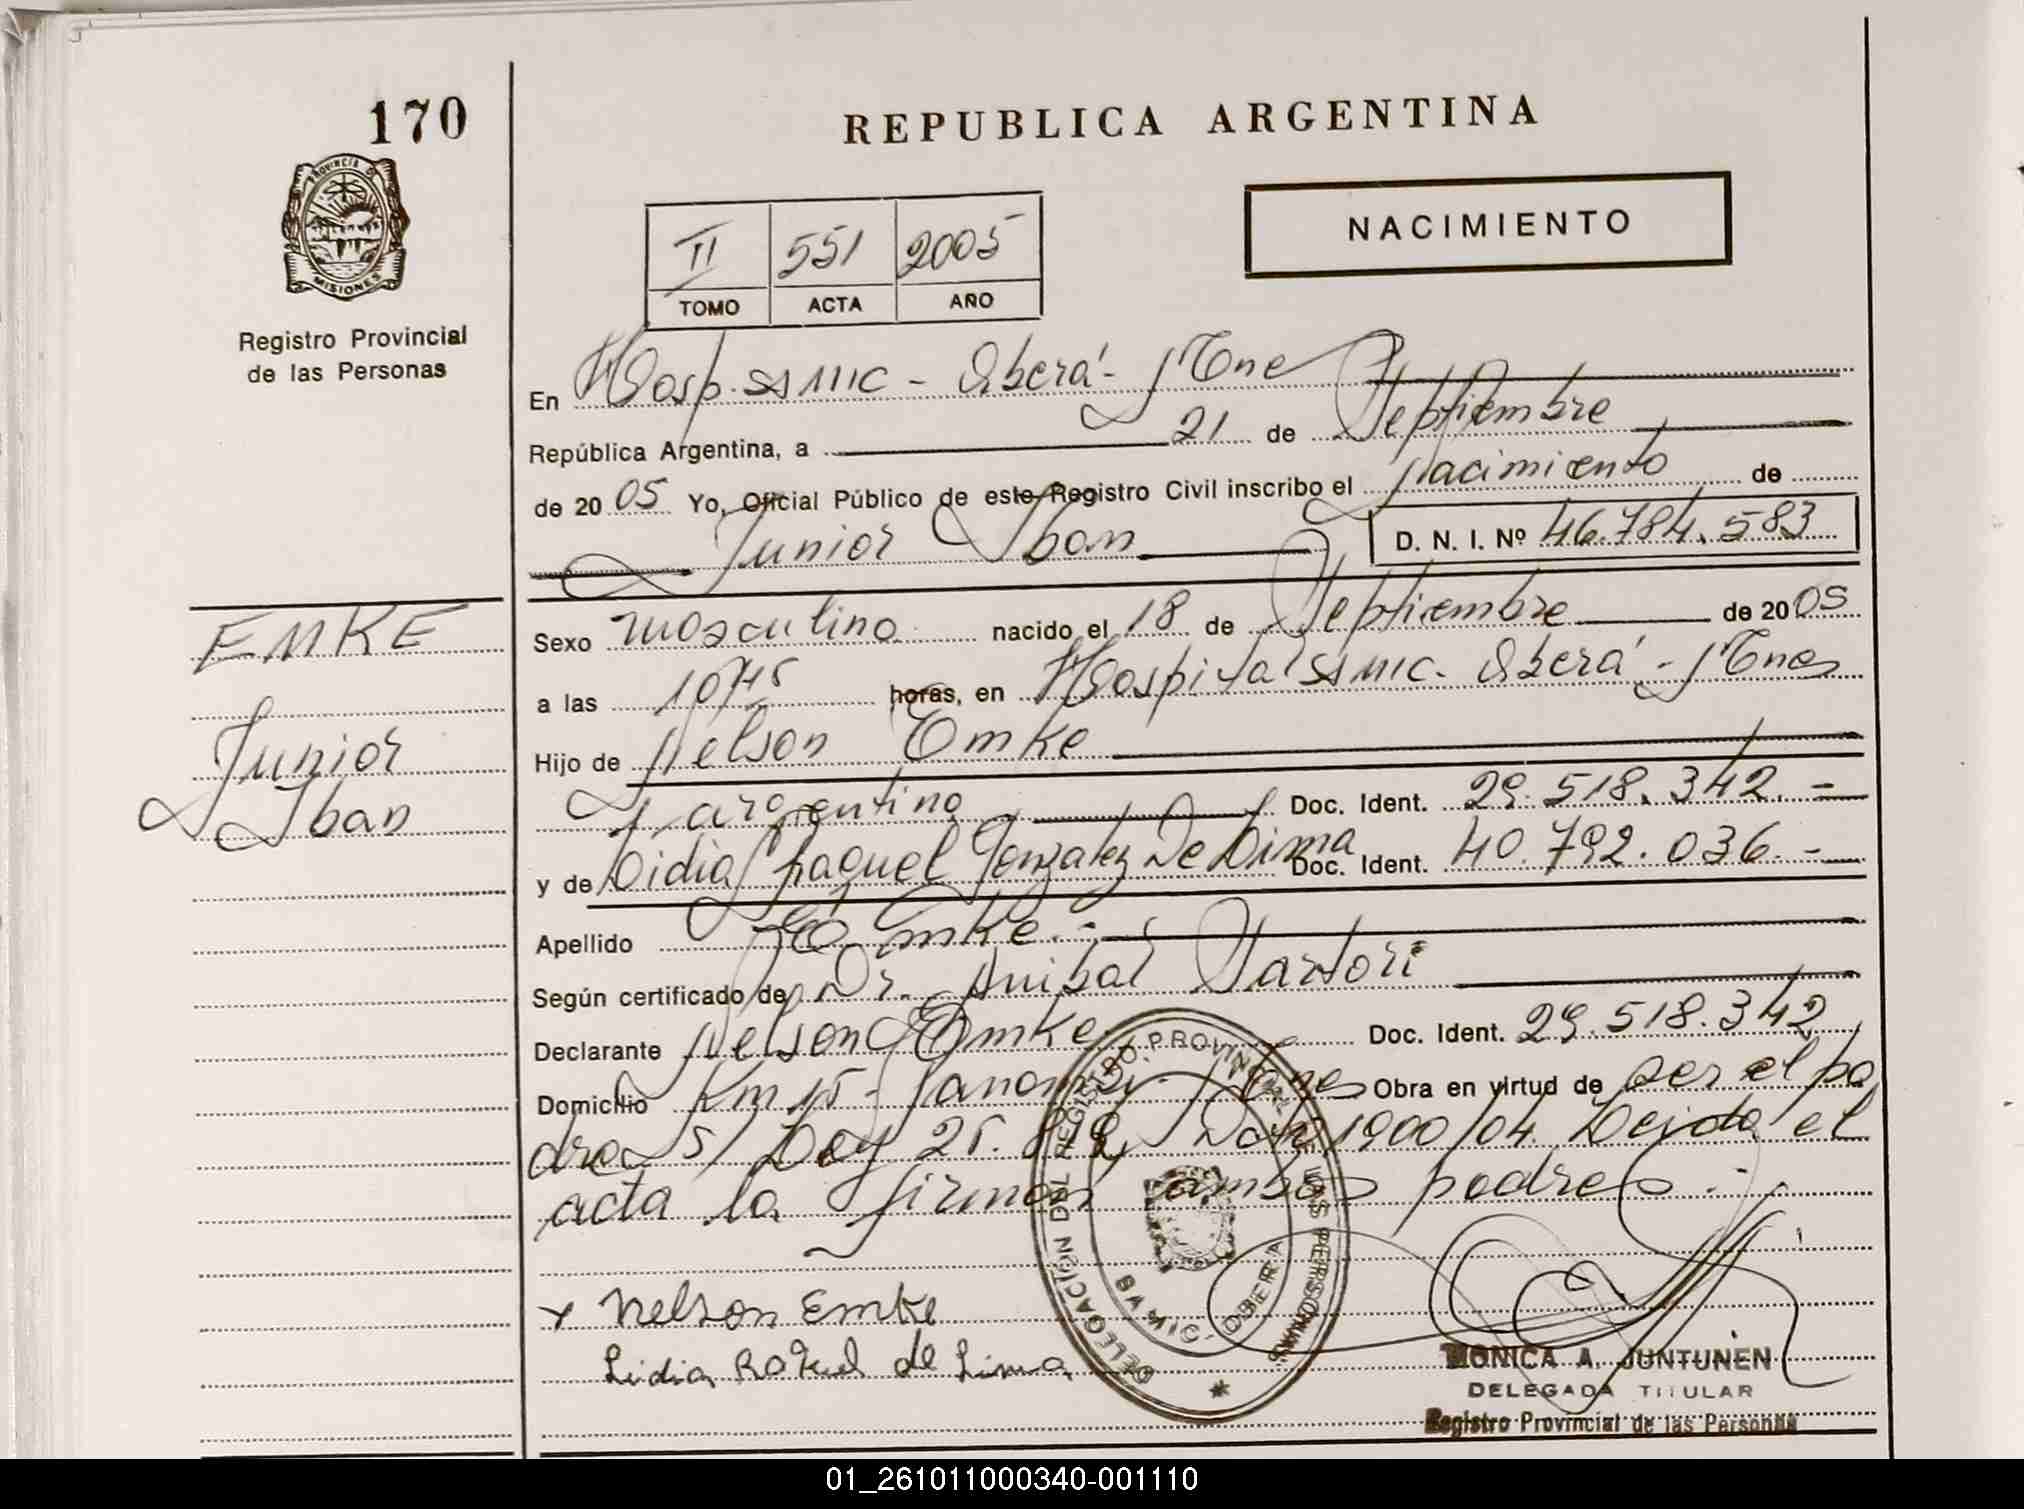 170
REPUBLICA ARGENTINA
PROVINCIA DE
MISIONES
Registro Provincial
de las Personas
NACIMIENTO
II 551 2005
TOMO ACTA AÑO
En Hosp. SAMIC - Oberá - Mnes
República Argentina, a 21 de Septiembre
de 2005 Yo, Oficial Público de este Registro Civil inscribo el nacimiento de
Junior Iban D. N. I. Nº 46.784.583
EMKE
Junior
Iban
Sexo masculino nacido el 18 de Septiembre de 2005
a las 10,45 horas, en Hospital SAMIC. Oberá - Mnes
Hijo de Nelson Emke
argentino Doc. Ident. 29.518.342.-
y de Lidia Raquel Gonzalez De Lima Doc. Ident. 40.792.036.-
Apellido Emke.-
Según certificado de Dr. Anibal Sartori
Declarante Nelson Emke Doc. Ident. 29.518.342
Domicilio Km 15 - Mnes Obra en virtud de ser el pa
dre S/ Ley 25.819, 1900/04. Leida el
acta la firman ambos padres.-
x Nelson Emke
Lidia Raquel de Lima
DELEGACIÓN DEL REGISTRO PROVINCIAL DE LAS PERSONAS
SAMIC - OBERA
MONICA A. JUNTUNEN
DELEGADA TITULAR
Registro Provincial de las Personas
01_261011000340-001110